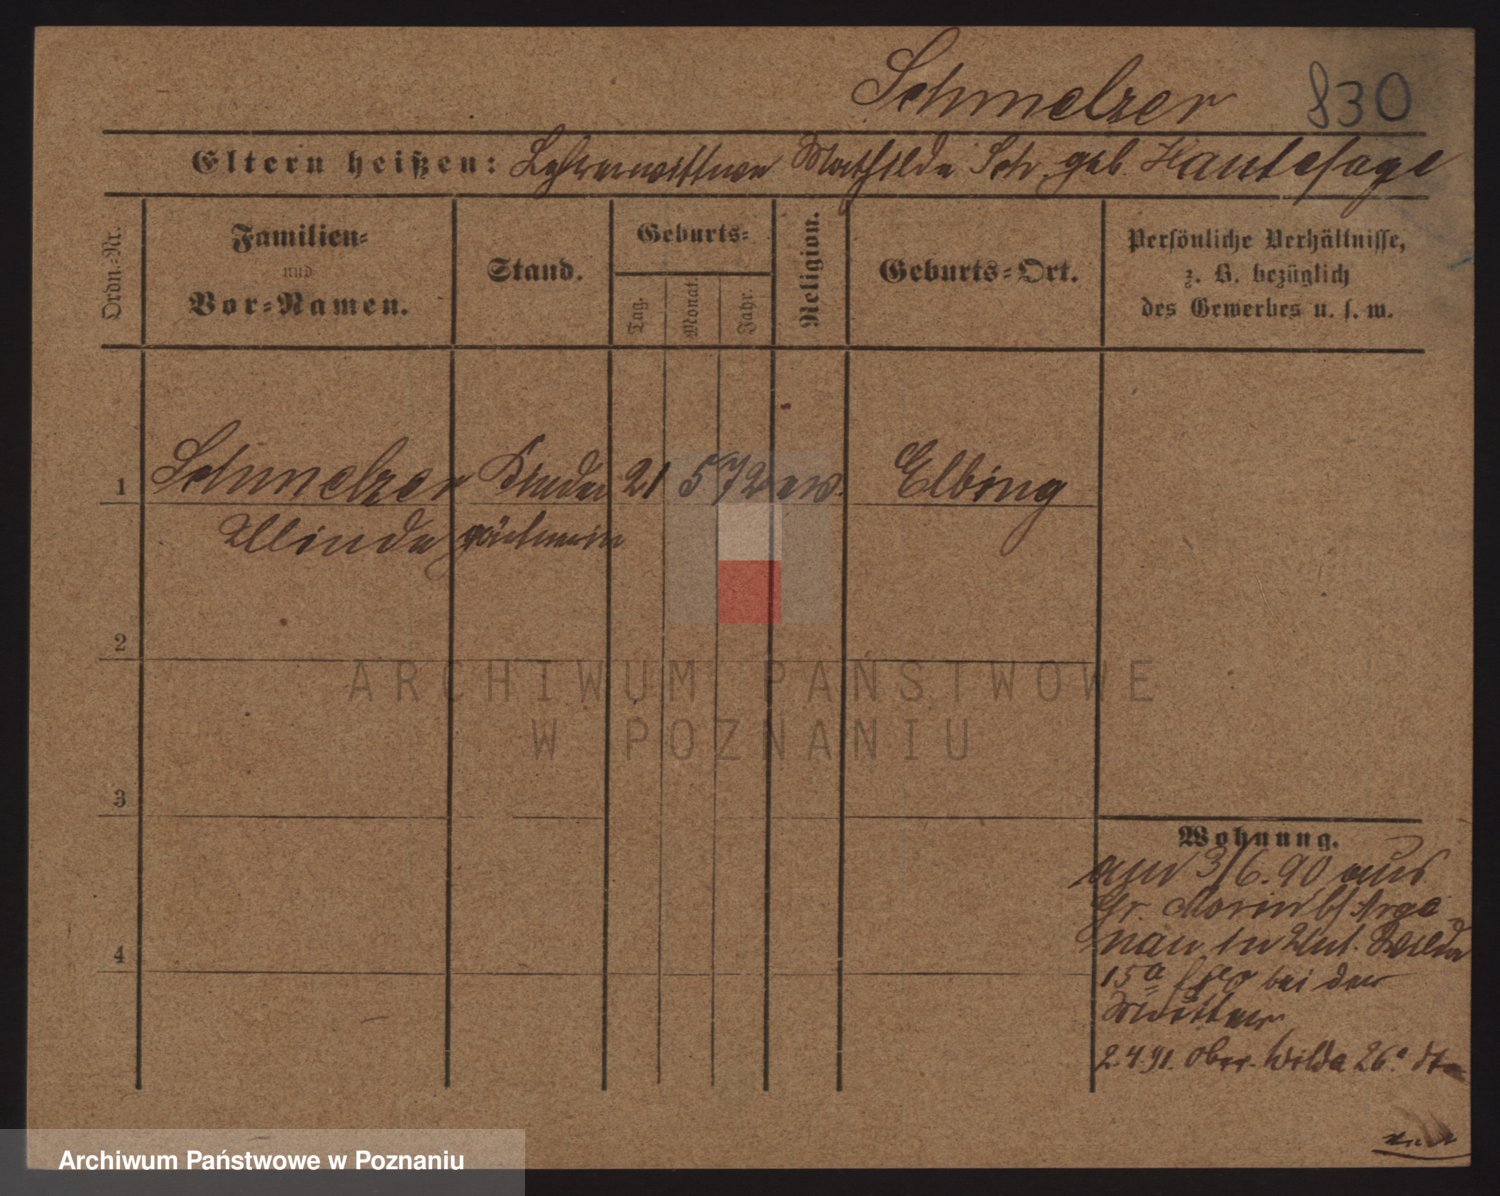 Schmelzer 830
Eltern heißen: Lehrerwittwe Mathilde Sch. geb. Hautesage
Ordn.-Nr.
Familien-
und
Vor-Namen.
Stand.
Geburts-
Tag.
Monat.
Jahr.
Religion.
Geburts-Ort.
Persönliche Verhältnisse,
z. B. bezüglich
des Gewerbes u. s. w.
1 Schmelzer Kinder 21 5 72 ev. Elbing
gärtnerin
2
3
4
Wohnung.
am 3/6.90 aus
Gr. Morin b/ Arge-
nau in Unt. Wilda
15a bei der
Mutter
2.4.91. Ober-Wilda 26a
ARCHIWUM PAŃSTWOWE
W POZNANIU
Archiwum Państwowe w Poznaniu